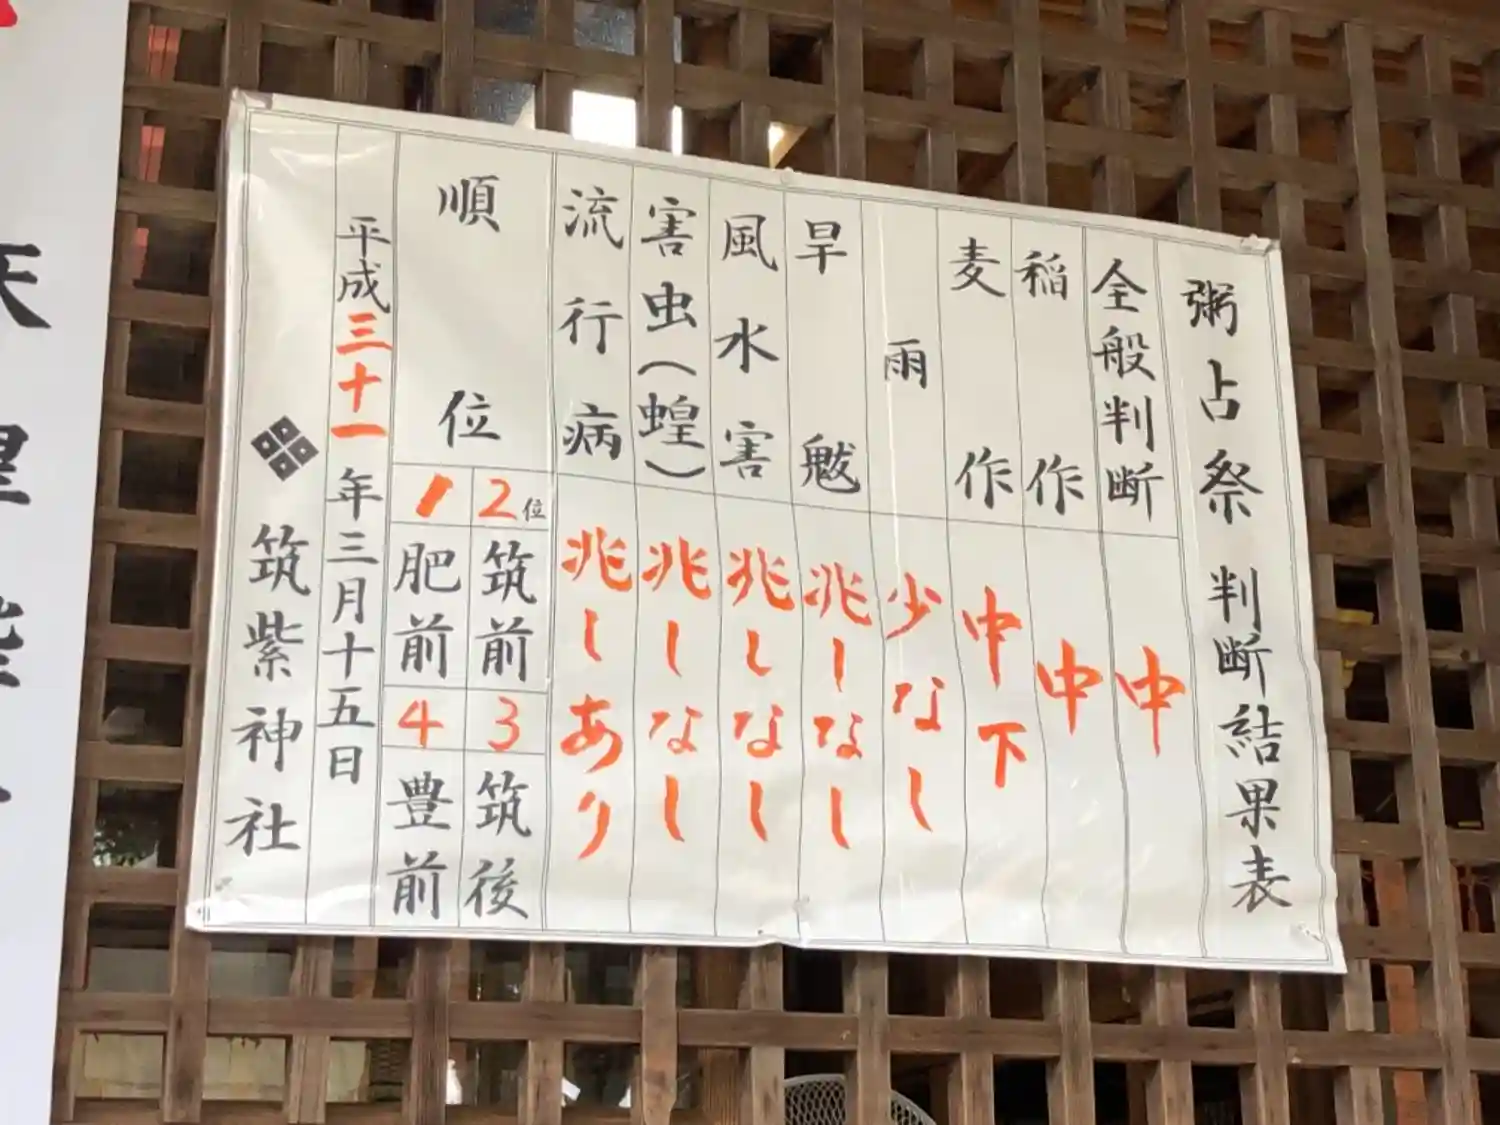 粥占祭 判断結果表
全般判断 中
稲作 中
麦作 中下
雨 少なし
旱魃 兆しなし
風水害 兆しなし
害虫(蝗) 兆しなし
流行病 兆しあり
順位
2位 筑前
3 筑後
1 肥前
4 豊前
平成三十一年三月十五日
筑紫神社